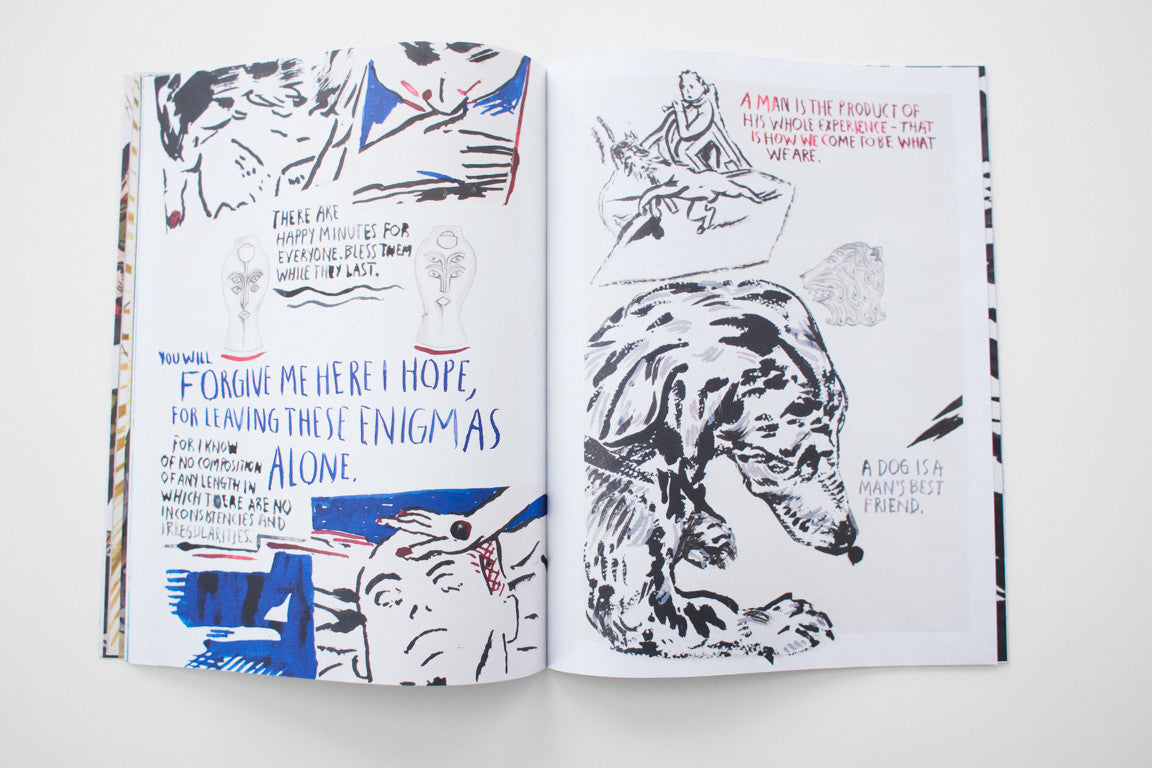 THERE ARE
HAPPY MINUTES FOR
EVERYONE. BLESS THEM
WHILE THEY LAST.
YOU WILL
FORGIVE ME HERE I HOPE,
FOR LEAVING THESE ENIGMAS
ALONE.
FOR I KNOW
OF NO COMPOSITION
OF ANY LENGTH IN
WHICH THERE ARE NO
INCONSISTENCIES AND
IRREGULARITIES.
A MAN IS THE PRODUCT OF
HIS WHOLE EXPERIENCE - THAT
IS HOW WE COME TO BE WHAT
WE ARE.
A DOG IS A
MAN'S BEST
FRIEND.